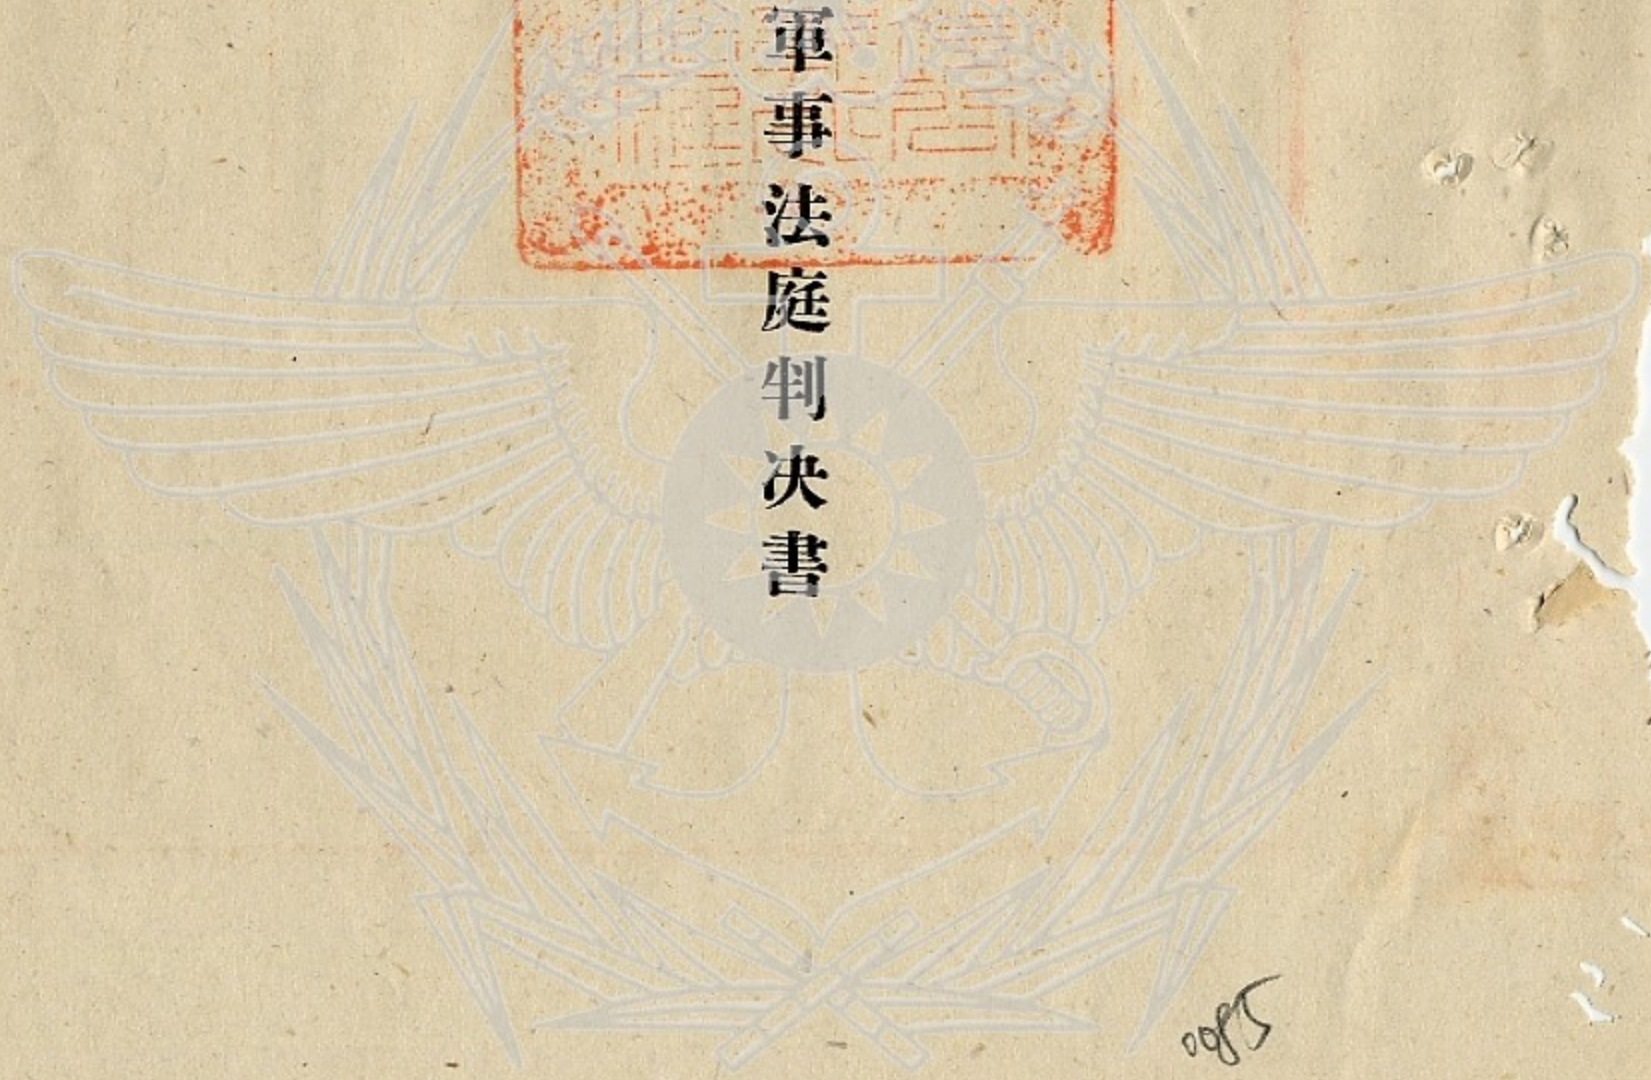 軍事法庭判决書
0085